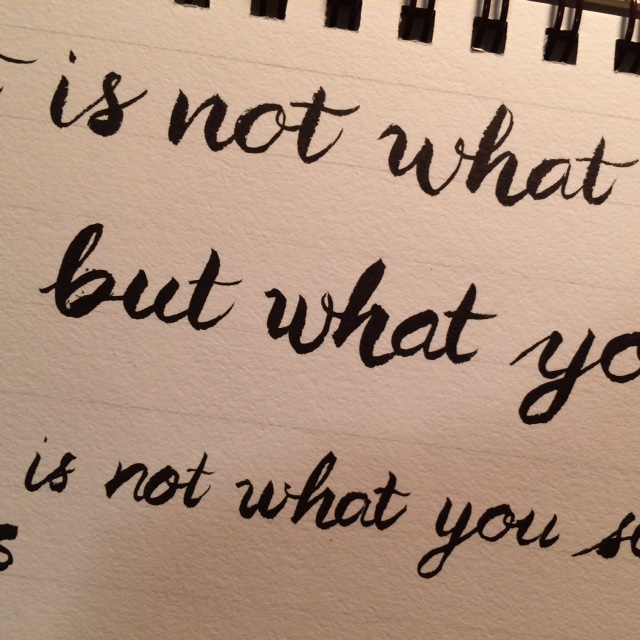 is not what
but what yo
is not what you s
s